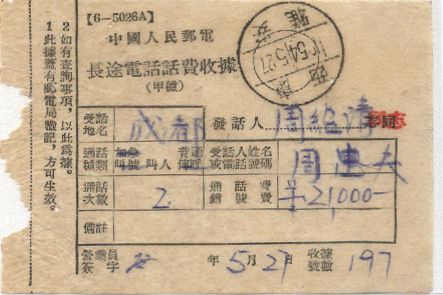 【6-5026A】
中國人民郵電
長途電話話費收據
(甲種)
受話地名 成都 發話人 周 同志
通話種類 叫號 叫人 普通 受話人姓名或電話號碼 周 夫
通話次數 2 通話費銷號費 21,000-
備註
營業員簽字 年 5月27日 收據號數 197
2 如有查詢事項,以此為據。
1 此據蓋有郵電局戳記,方可生效。
54.5.27